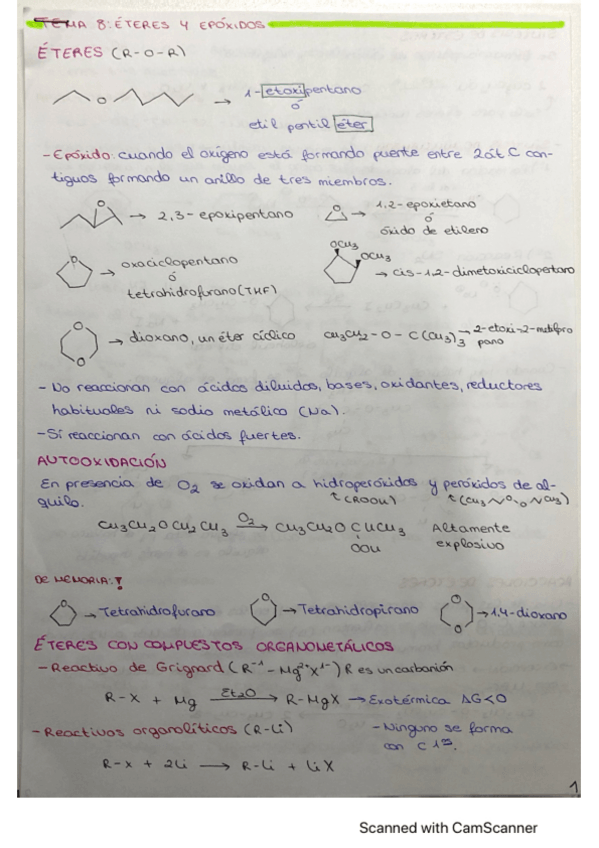 TEMA 8: ÉTERES Y EPÓXIDOS
ÉTERES (R-O-R)
O → 1-etoxipentano
ó
etil pentil éter
- Epóxido: cuando el oxígeno está formando puente entre 2 át C con-
tiguos formando un anillo de tres miembros.
O → 2,3-epoxipentano
O → 1,2-epoxietano
ó
óxido de etileno
O → oxaciclopentano
ó
tetrahidrofurano (THF)
OCH3
OCH3
→ cis-1,2-dimetoxiciclopentano
O
O
→ dioxano, un éter cíclico
CH3CH2-O-C(CH3)3 → 2-etoxi-2-metilpro
pano
- No reaccionan con ácidos diluidos, bases, oxidantes, reductores
habituales ni sodio metálico (Na).
- Sí reaccionan con ácidos fuertes.
AUTOOXIDACIÓN
En presencia de O2 se oxidan a hidroperóxidos y peróxidos de al-
quilo.
↑(ROOH) ↑(CH3 O O CH3)
CH3CH2OCH2CH3 O2→ CH3CH2OCHCH3
OOH
Altamente
explosivo
DE MEMORIA:!
O → Tetrahidrofurano
O → Tetrahidropirano
O
O
→ 1,4-dioxano
ÉTERES CON COMPUESTOS ORGANOMETÁLICOS
- Reactivo de Grignard (R-1 - Mg2+ X1-) R es un carbanión
R-X + Mg Et2O→ R-MgX → Exotérmica ΔG<0
- Reactivos organolíticos (R-Li)
- Ninguno se forma
con C 1os.
R-X + 2Li → R-Li + LiX
1
Scanned with CamScanner